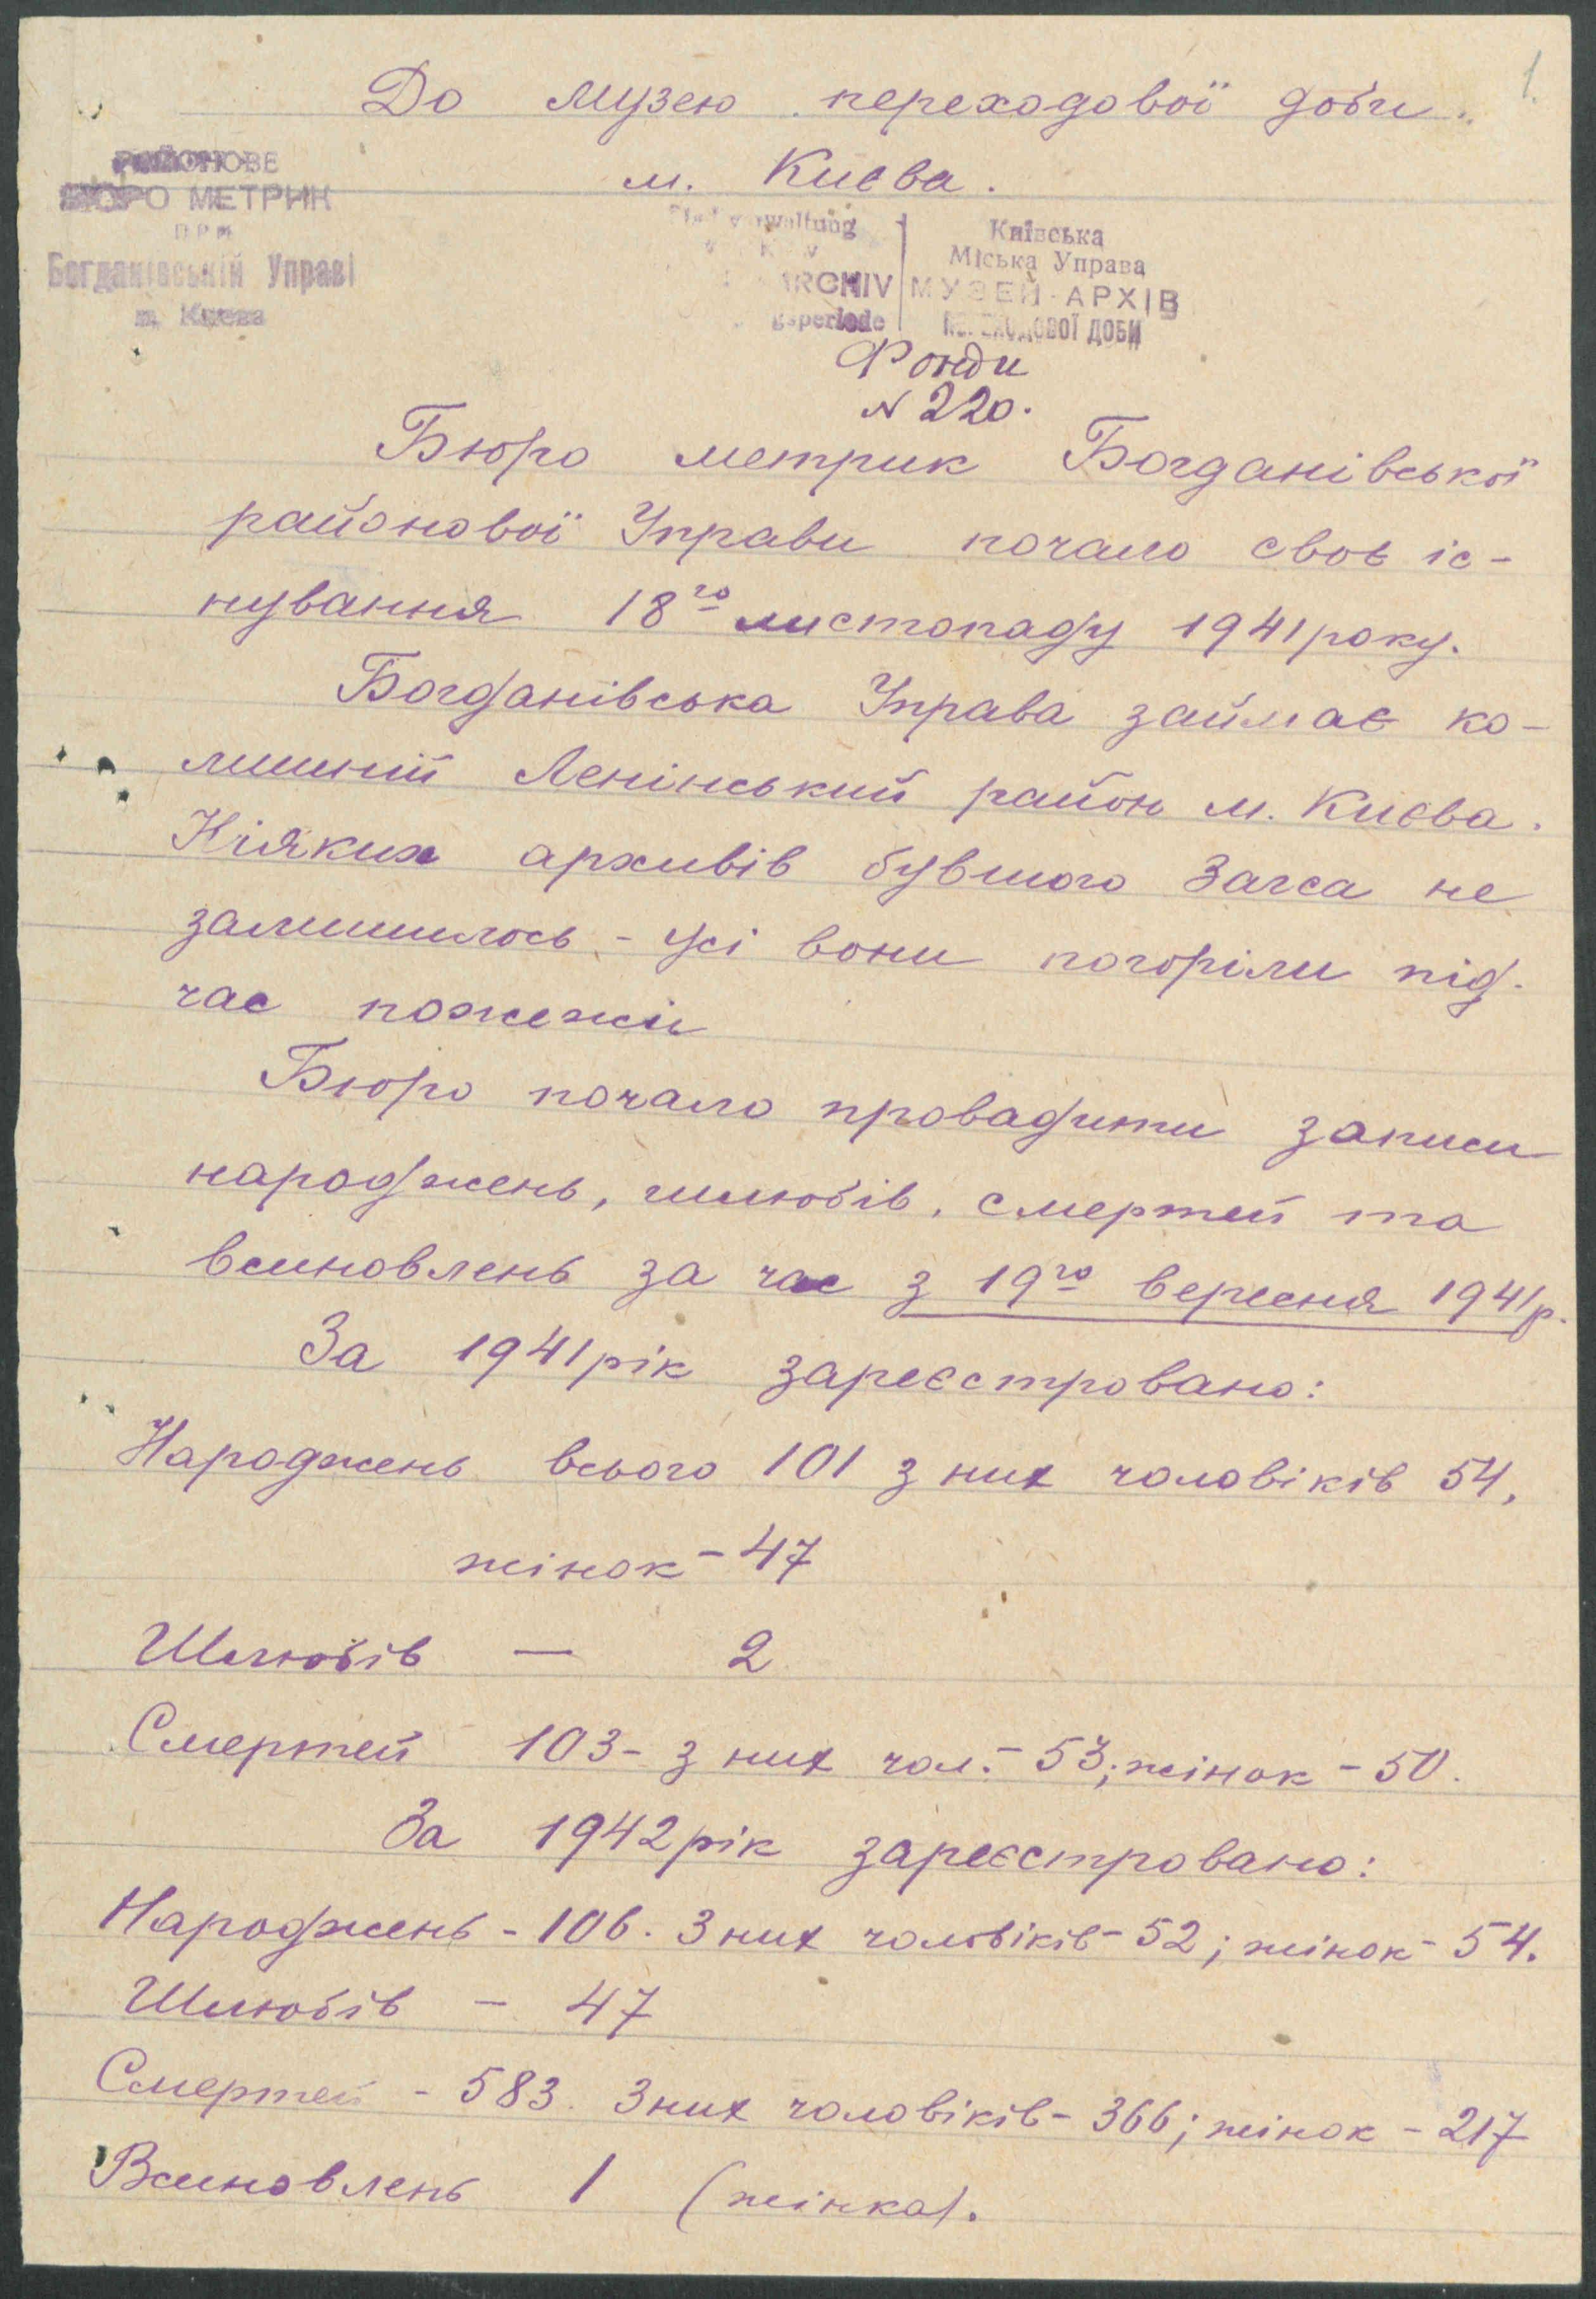 1.
До музею переходової доби
м. Києва.
РАЙОНОВЕ
БЮРО МЕТРИК
при
Богданівській Управі
м. Києва
Stadtverwaltung
ARCHIV
gsperiode
Київська
Міська Управа
МУЗЕЙ-АРХІВ
ПЕРЕХОДОВОЇ ДОБИ
Фонди
N 220.
Бюро метрик Богданівської
районової Управи почало своє іс-
нування 18го листопаду 1941 року.
Богданівська Управа займає ко-
лишній Ленінський район м. Києва.
Ніяких архивів бувшого Загса не
залишилось - усі вони погоріли під
час пожежі
Бюро почало провадити записи
народжень, шлюбів, смертей та
всиновлень за час з 19го вересня 1941р.
За 1941 рік зареєстровано:
Народжень всього 101 з них чоловіків 54,
жінок - 47
Шлюбів — 2
Смертей 103 - з них чол. - 53; жінок - 50.
За 1942 рік зареєстровано:
Народжень - 106. З них чоловіків - 52; жінок - 54.
Шлюбів - 47
Смертей - 583. З них чоловіків - 366; жінок - 217
Всиновлень 1 (жінка).